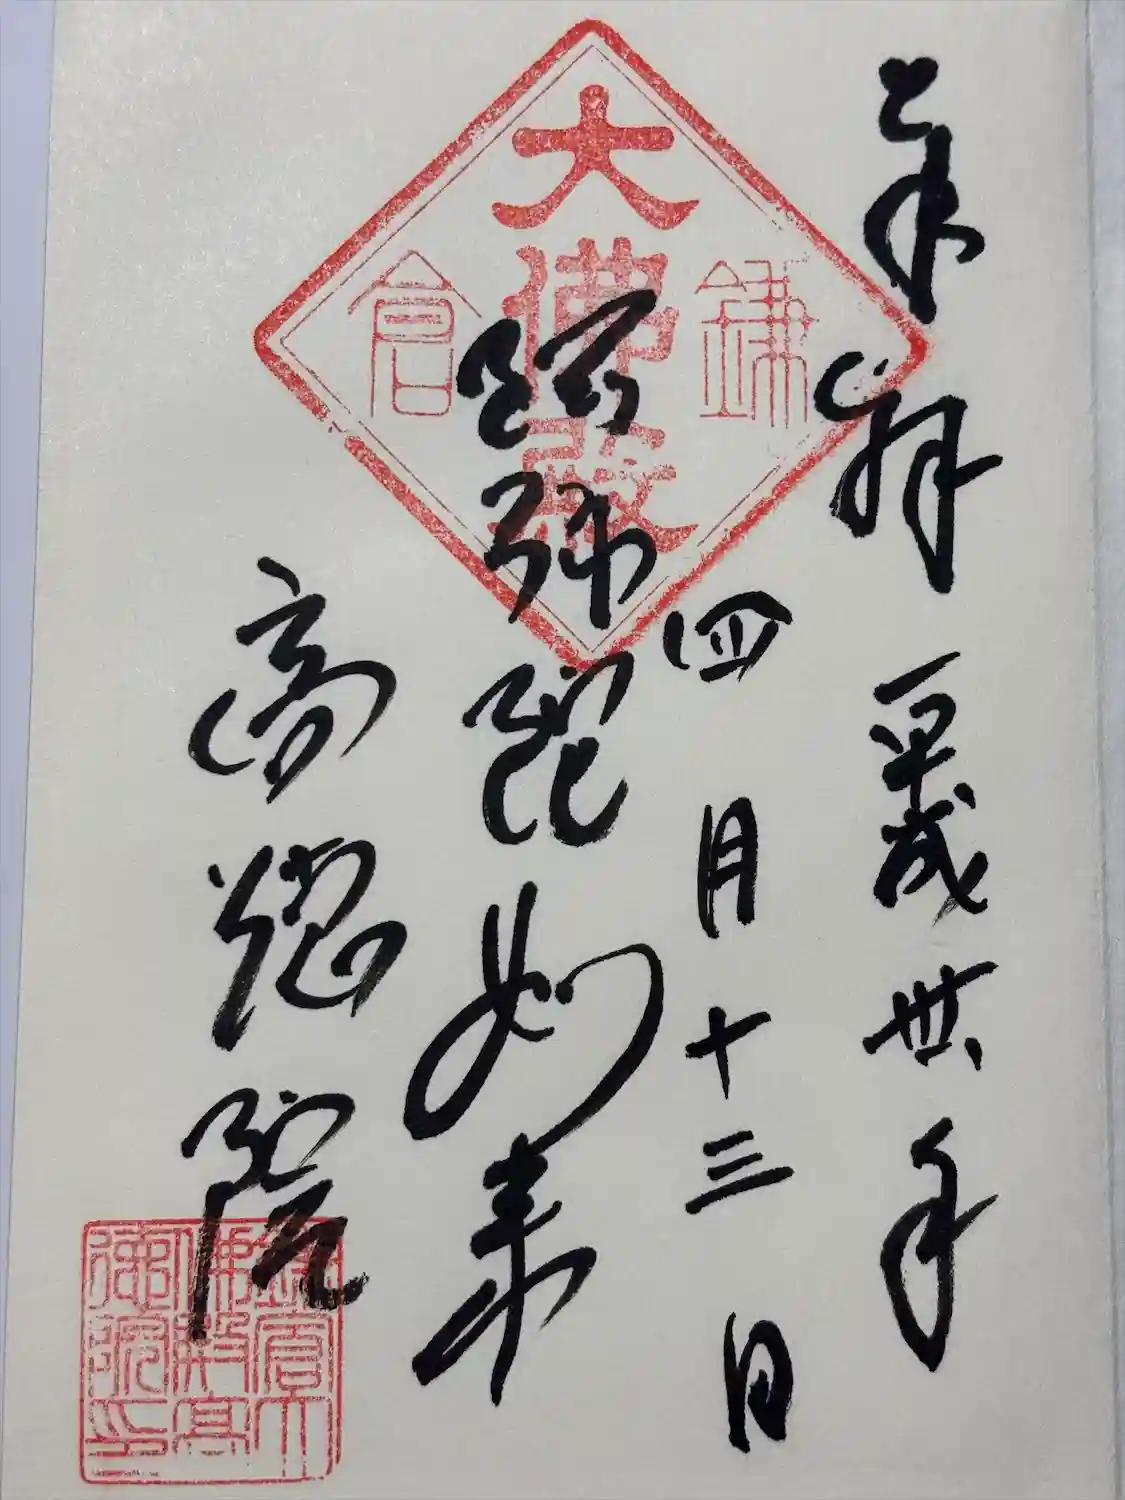 奉拝 平成丗年
四月十三日
阿弥陀如来
高徳院
鎌倉
大佛殿
鎌倉大
佛殿高
德院印